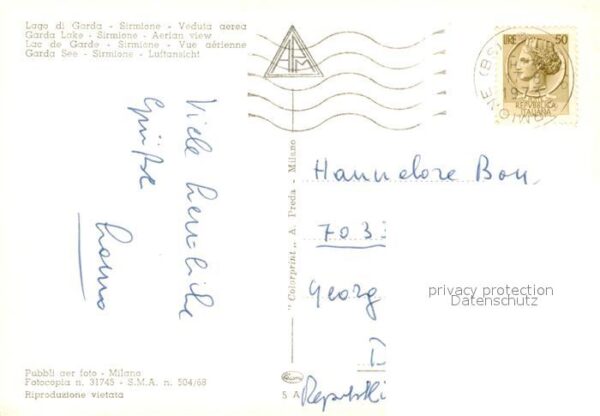 Lago di Garda - Sirmione - Veduta aerea
Garda Lake - Sirmione - Aerian view
Lac de Garde - Sirmione - Vue aérienne
Garda See - Sirmione - Luftansicht
LIRE 50
REPVBBLICA
ITALIANA
SIRMIONE (BS)
Viele herzliche
Grüße
"Colorprint" A. Preda - Milano
Hannelore Bon
703
Georg
privacy protection
Datenschutz
Pubbli aer foto - Milano
Fotocopia n. 31745 - S.M.A. n. 504/68
Riproduzione vietata
S. A